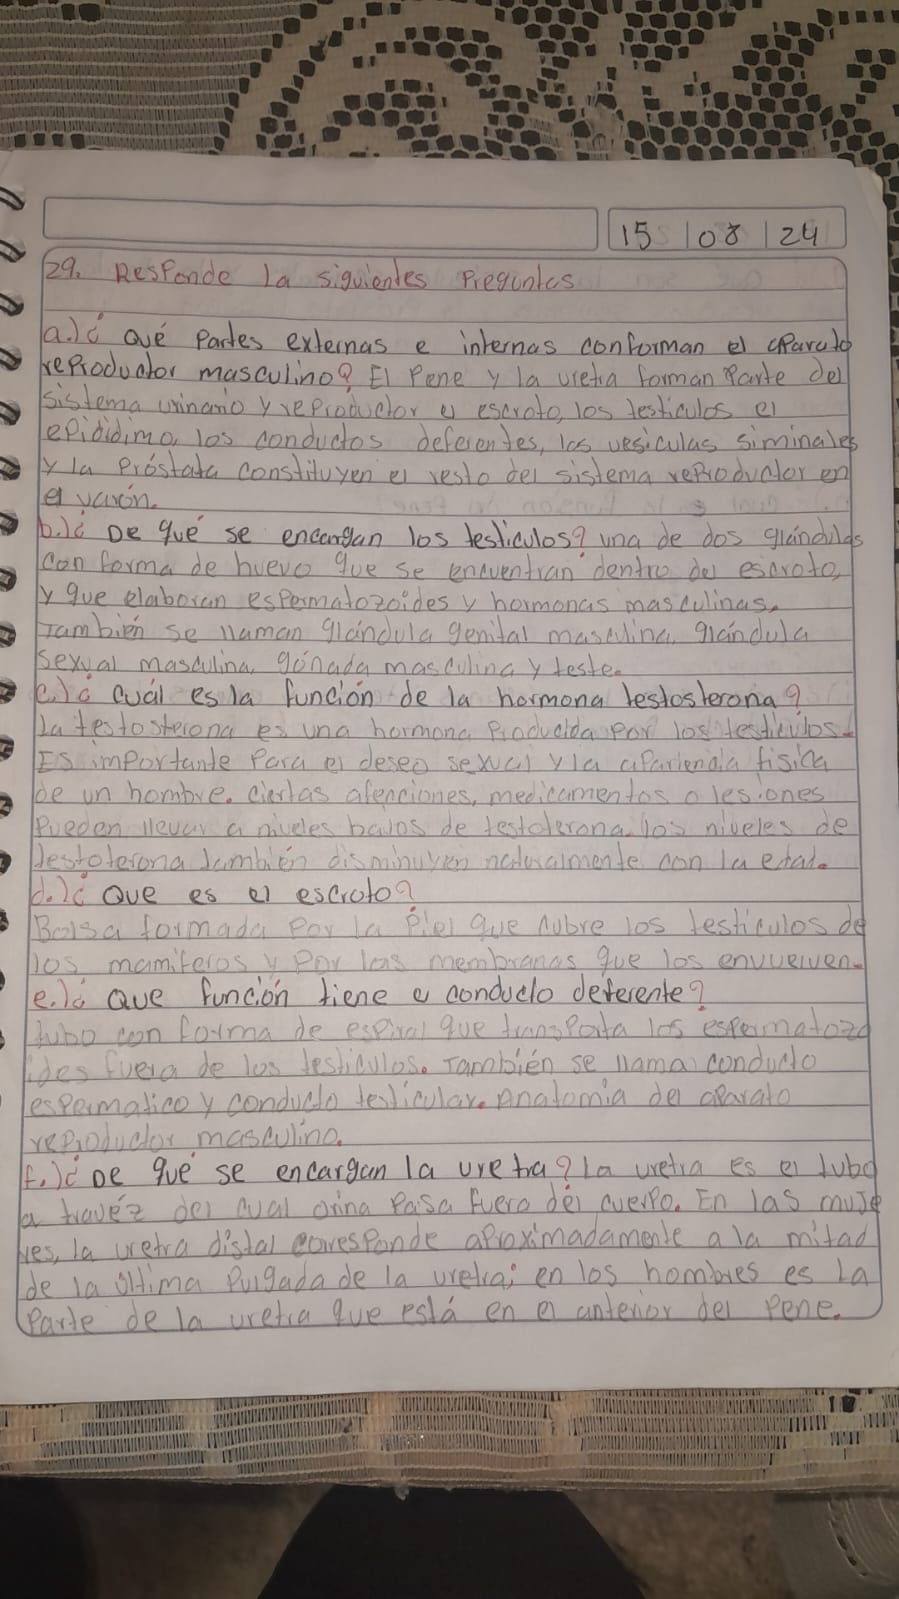 15 / 08 / 24
29. Responde la siguientes Preguntas
a.)¿ Qué Partes externas e internas conforman el aparato
reproductor masculino? El Pene y la uretra forman Parte del
sistema urinario y reproductor el escroto, los testiculos el
epididimo, los conductos deferentes, las vesiculas siminales
y la Próstata constituyen el resto del sistema reproductor en
el varón.
b.)¿ De qué se encargan los testiculos? una de dos glándulas
con forma de huevo que se encuentran dentro del escroto,
y que elaboran espermatozoides y hormonas masculinas.
También se llaman glándula genital masculina, glándula
sexual masculina, gónada masculina y teste.
c.)¿ Cuál es la función de la hormona testosterona?
La testosterona es una hormona Producida por los testiculos.
Es importante Para el deseo sexual y la apariencia fisica
de un hombre. Ciertas afenciones, medicamentos o lesiones
Pueden llevar a niveles bajos de testoterona. los niveles de
testoterona también disminuyen naturalmente con la edad.
d.)¿ Que es el escroto?
Bolsa formada Por la Piel que cubre los testiculos de
los mamiferos y por las membranas que los envuelven.
e.)¿ Que función tiene el conducto deferente?
tubo con forma de espiral que transporta los espermatozo
ides fuera de los testiculos. También se llama conducto
espermatico y conducto testicular. Anatomia del aparato
reproductor masculino.
f.)¿ De qué se encargan la uretra? La uretra es el tubo
a travéz del cual orina Paisa fuera del cuerpo. En las muje
res, la uretra distal corresponde aproximadamente a la mitad
de la última Pulgada de la uretra; en los hombres es la
Parte de la uretra que está en el anterior del Pene.